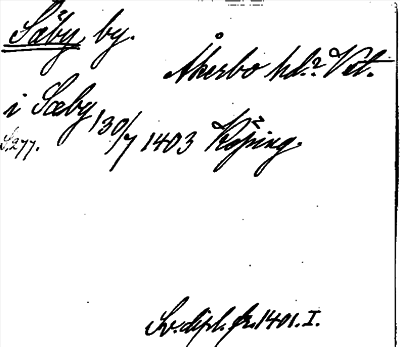 Säby, by.
Åkerbo hd? Vst.
i Sæby 130/7 1403 Köping.
S.277.
Sv. dipl. fr. 1401. I.